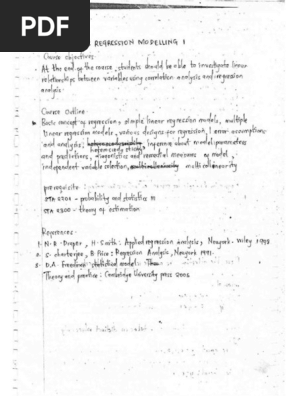 PDF
REGRESSION MODELLING 1
Course objectives
- At the end of the course, students should be able to investigate linear
relationships between variables using correlation analysis and regression
analysis
Course Outline
Basic concept of regression, simple linear regression models, multiple
linear regression models, various designs for regression, error assumptions
and analysis, inference about model parameters
and predictions, diagnostics and remedial measures of model,
independent variable selection, multicolinearity
prerequisite
STA 2201 - probability and statistics III
STA 2300 - theory of estimation
References
1. N.B. Draper, H. Smith: Applied regression Analysis, Newyork. Wiley 1998
2. S. chatterjee, B. Price: Regression Analysis, Newyork 1991.
3. D.A Freedman statistical models: The
Theory and practice: Cambridge University press 2005